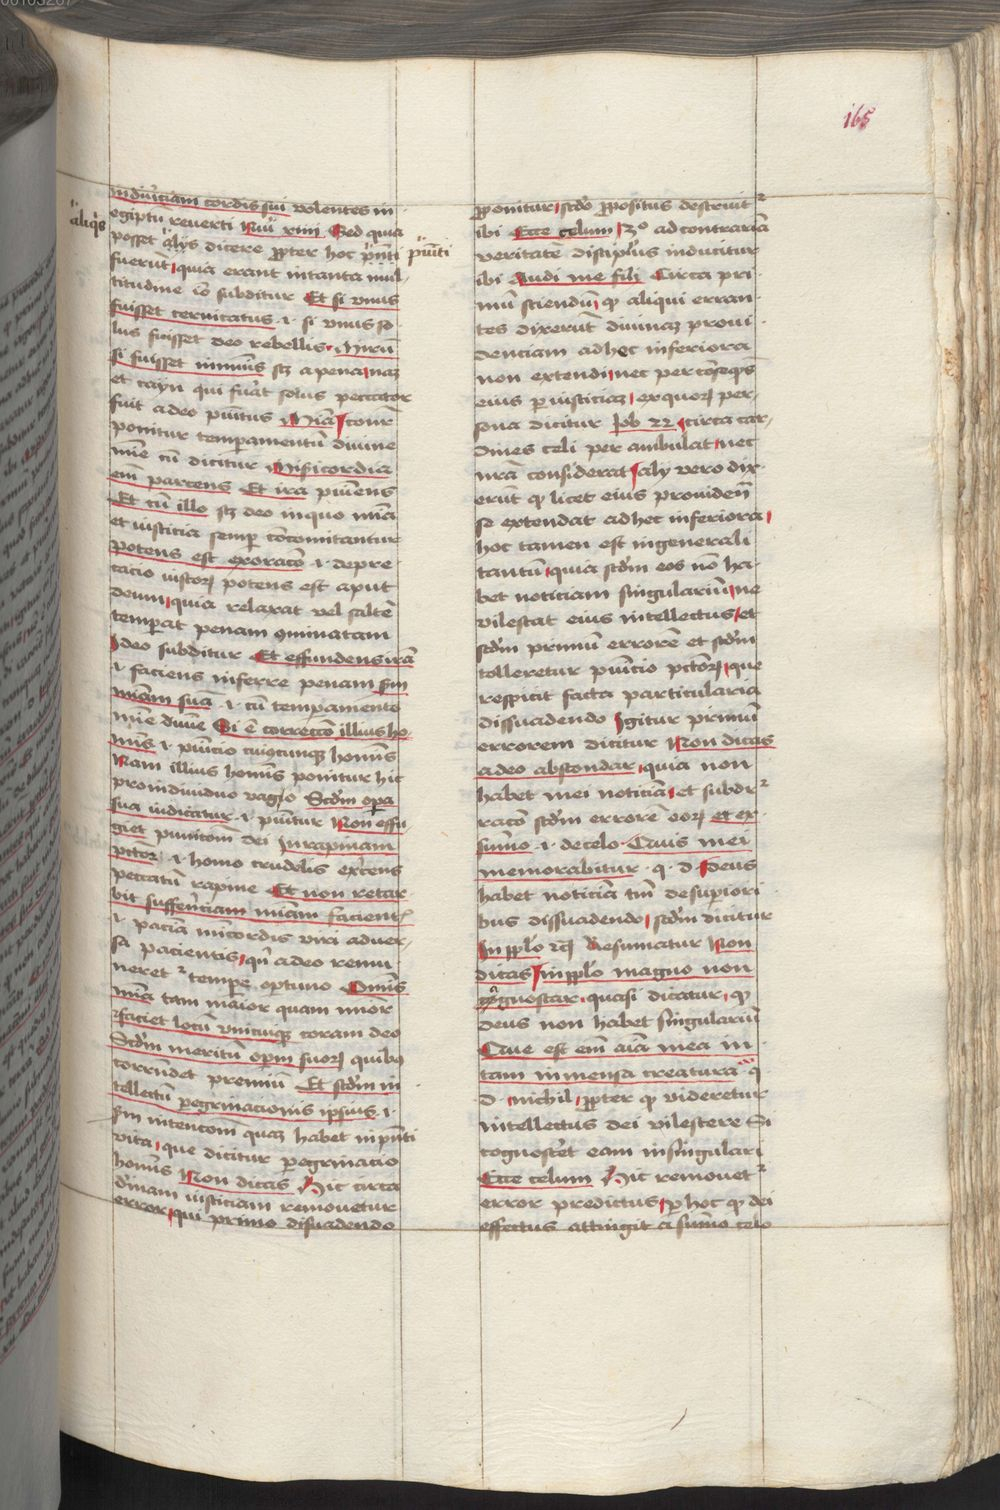 165
in duriciam cordis sui volentes in
egiptū reverti Nūi xiiii Sed quia
aliq̄s
posset aliq̄s dicere ꝓpter hoc pūiti
pūiti
fuerūt quia erant in tanta mul
titudine iō subditur Et si vnus
fuisset cervicatus .i. si vnus so
lus fuisset deo rebellis Mirū
si fuisset inmuīs sꝫ a pena naꝫ
et cayn qui fuāt solus peccator
fuit a deo pūitus Mīa com̄
ponitur temperamentū divine
mīe cū dicitur Misericordia
em̄ parcens Et ira pūiens
Et cū illo sꝫ deo in quo mīa
et iusticia semꝑ concomitantur
potens est exoracō .i. depre
cacio iustoꝝ potens est aput
deum quia relaxat vel saltē
temꝑat penam ꝯminatam
Ideo subditur Et effundens irā
.i. faciens inferre penam scdm
mīam suā .i. cū temperamento
mīe diuīe Si ē correccō illius ho
mīs .i. pūicio cuiuscunqꝫ homīs
Nam illius homīs ponitur hic
pro indiuiduo vago Scdm opa
sua iudicatur .i. pūitur Non effu
giet punicōm dei In rapinam
pctōr .i. homo crudelis exercens
peccatū rapine Et non retar
bit sufferēciam mīam facient
.i. pacīa mīcordis viri adver
sa pacientis qn a deo remu
neret tempe oportuno Omīs
mīa tam maior quam mīor
faciet locū vnicuiqꝫ coram deo
Scdm meritū opm suoꝝ quibꝰ
correndet premiū Et scdm in
tellectū peregrinacionis ipsius .i.
scdm intencōm quaꝫ habet in pn̄ti
vita que dicitur peregrinacio
homīs Non dicas Hic circa
diuinam iusticiam removetur
error qui primo disuadendo
ꝓponitur scdo ꝓpositus destruit
ibi Ecce celum 3º ad contrariā
veritatē discipl̄us inducitur
ibi Audi me fili Circa pri
mū sciendū ꝙ aliqui erran
tes dixerūt divinaꝫ provi
denciam ad hec inferiora
non extendi nec per cōseqn̄s
eius ꝑ iusticiaꝫ ex quoꝝ per
sona dicitur Job 22 circa car
dines celi per ambulat nec
nr̄a considerat aly vero dix
erūt ꝙ licet eius providen̄
se extendat ad hec inferiora
hoc tamen est in generali
tantū quia scdm eos nō ha
bet noticiam singulariū ne
vilescat eius intellectus et
scdm primū errorē et scdm
tolleretur pūicio pctōꝝ que
respicit facta particularia
dissuadendo Igitur primū
errorem dicitur Non dicas
a deo abscondar quia non
habet mei noticiā et subdr
racō scdm errorē eoꝝ et ex
sūmo .i. de celo Quis mei
memorabitur q. d. Deus
habet noticiā tm̄ de supiori
bus dissuadendo scdm dicitur
In pplo rcꝫ Resumatur Non
dicas In pplo magno non
agnoscar quasi dicatur ꝙ
deus non habet singulariū
Que est em̄ aīa mea in
tam inmensa creatura q̄
d. nichil ꝓpter ꝙ videretur
intellectus dei vilescere Si
cognoscēt eam in singulari
Ecce celum Hic removet
error predictus ꝑ hoc ꝙ dei
effectus attingit a sūmo celo